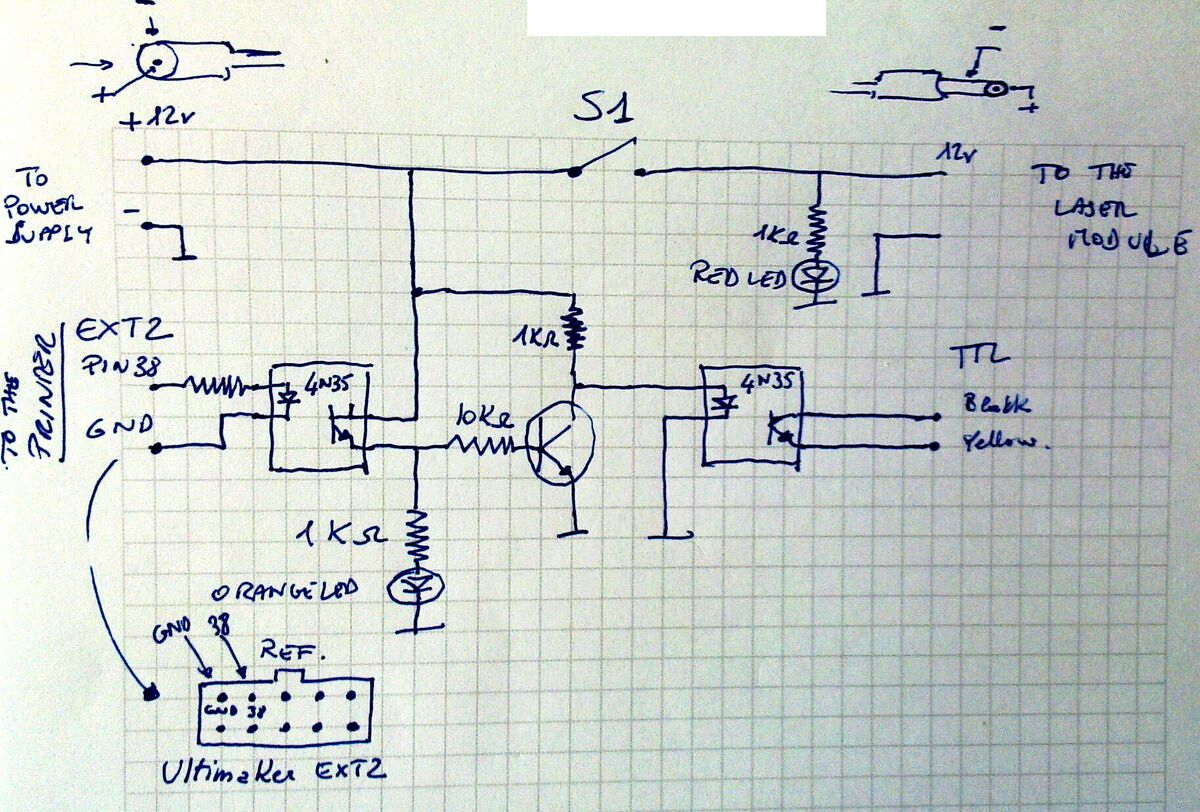 -
+
-
+
S1
+12v
12v
TO
POWER
SUPPLY
-
TO THE
LASER
MODULE
1KΩ
RED LED
TO THE
PRINTER
EXT2
PIN38
GND
4N35
1KΩ
10KΩ
4N35
TTL
Black
Yellow.
1KΩ
ORANGE LED
GND 38
REF.
GND 38
Ultimaker EXT2